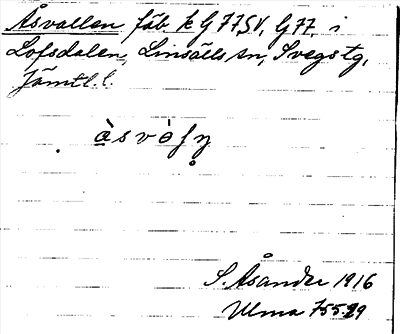 Åsvallen fäb. k G 77 SV, G 77. i
Lofsdalen, Linsälls sn, Svegs tg,
Jämtl. l.
S. Åsander 1916
Ulma 755:29